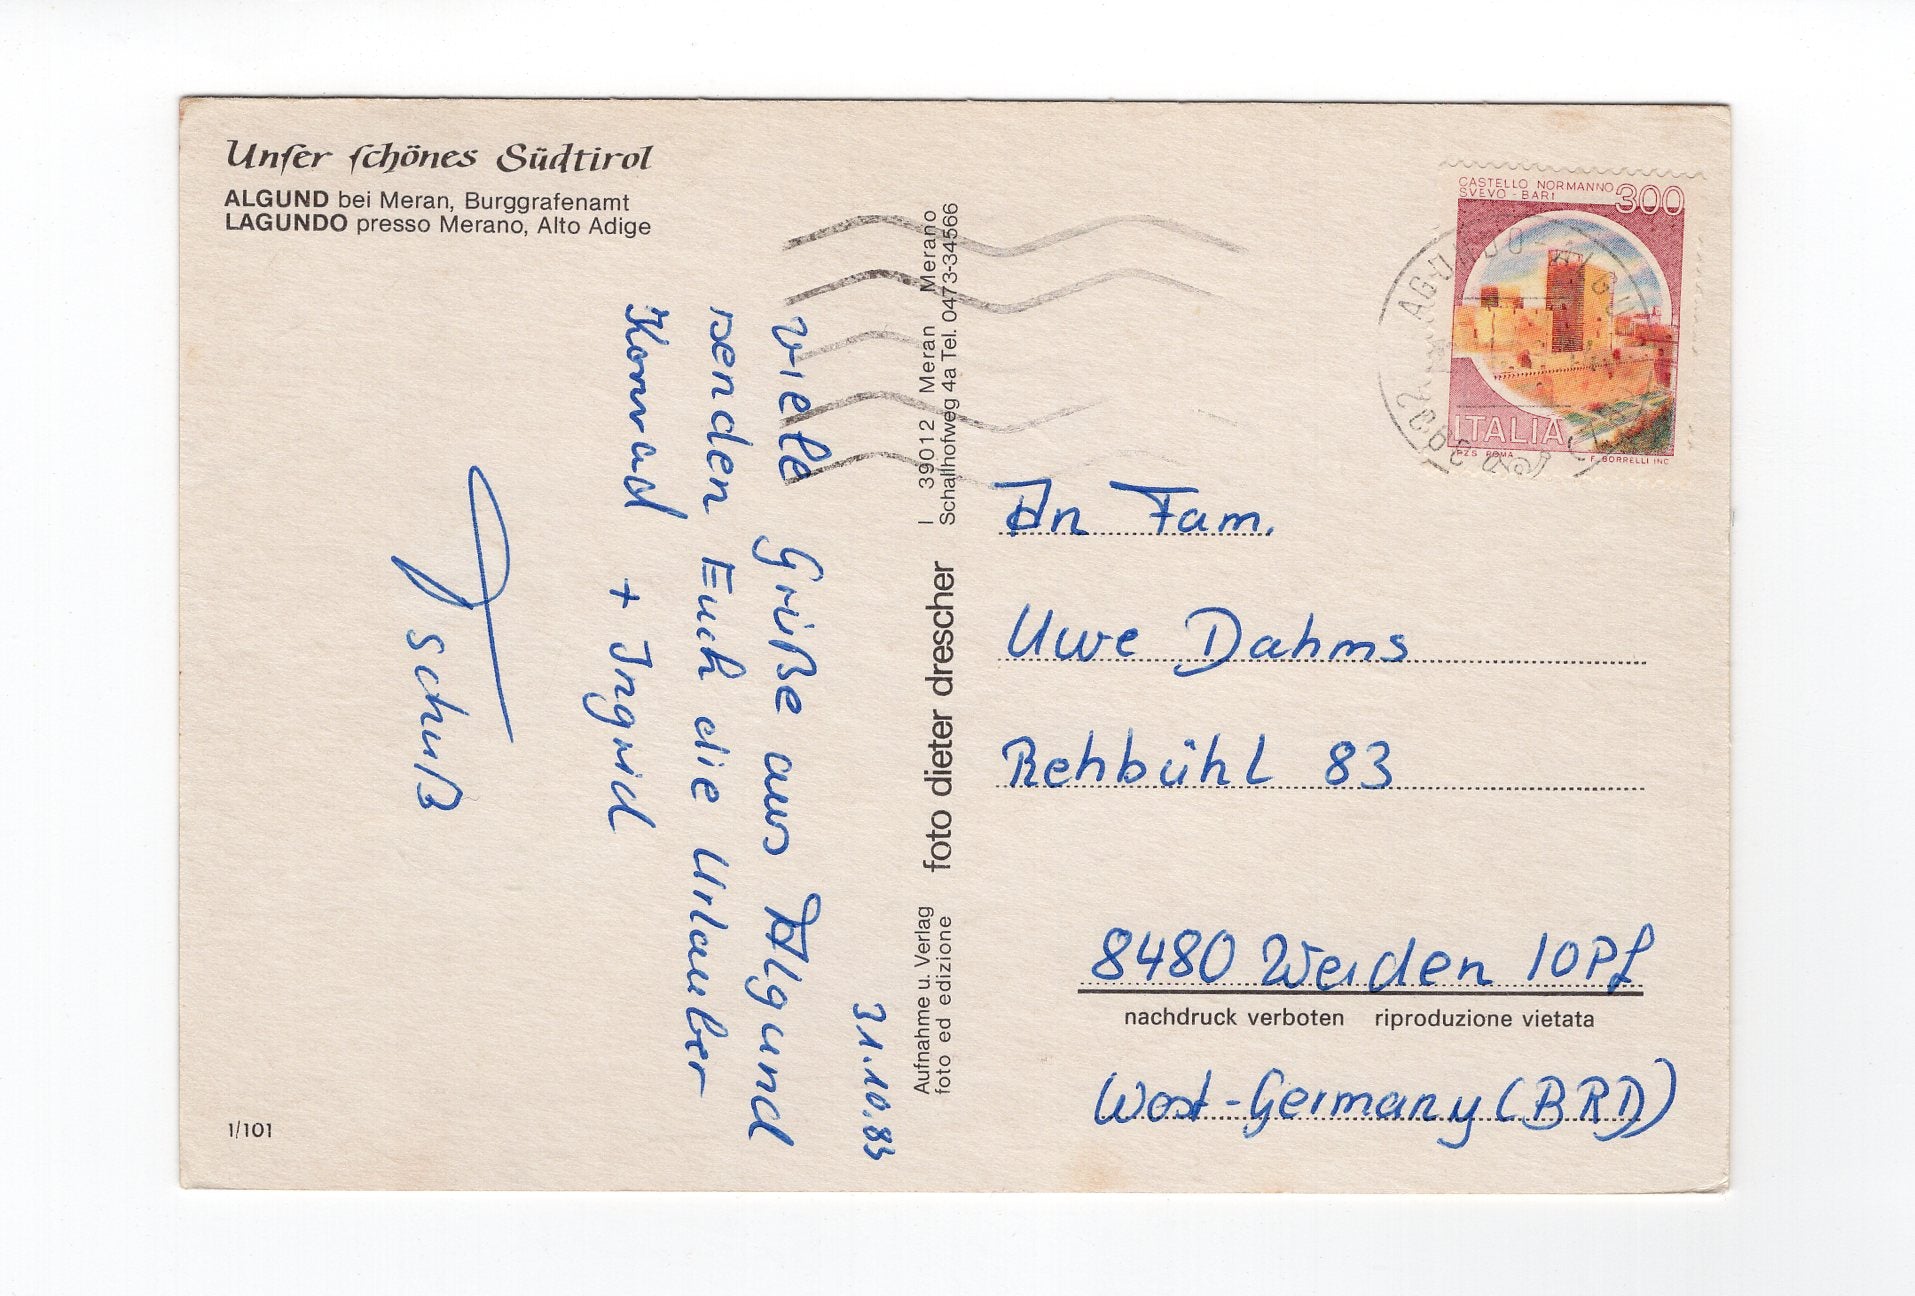 Unser schönes Südtirol
ALGUND bei Meran, Burggrafenamt
LAGUNDO presso Merano, Alto Adige
31.10.83
viele Grüße aus Algund
senden Euch die Urlauber
Konrad + Ingrid
Tschuß
1/101
Aufnahme u. Verlag
foto ed edizione
foto dieter drescher
I 39012 Meran Merano
Schallhofweg 4a Tel. 0473-34566
CASTELLO NORMANNO
SVEVO - BARI
300
ITALIA
I.P.Z.S. ROMA
F. BORRELLI INC.
An Fam.
Uwe Dahms
Rehbühl 83
8480 Weiden 10Pf
nachdruck verboten riproduzione vietata
West-Germany (BRD)